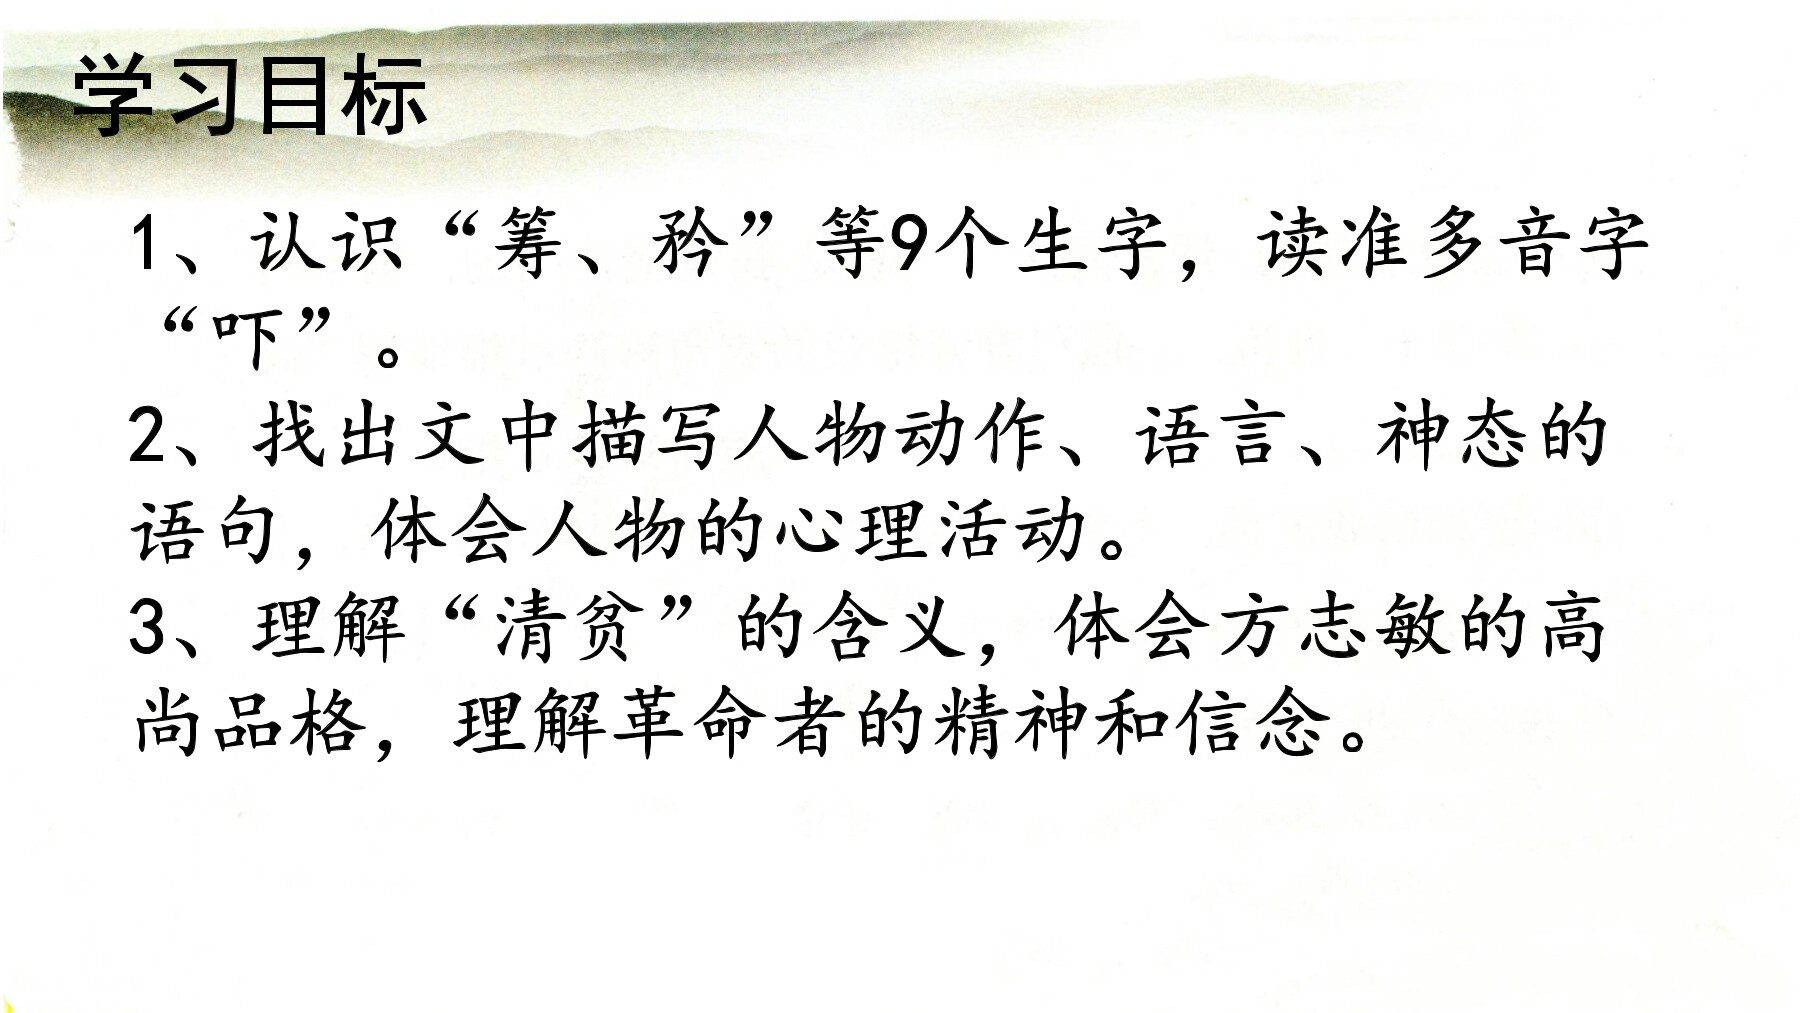 学习目标
1、认识“筹、矜”等9个生字，读准多音字
“吓”。
2、找出文中描写人物动作、语言、神态的
语句，体会人物的心理活动。
3、理解“清贫”的含义，体会方志敏的高
尚品格，理解革命者的精神和信念。